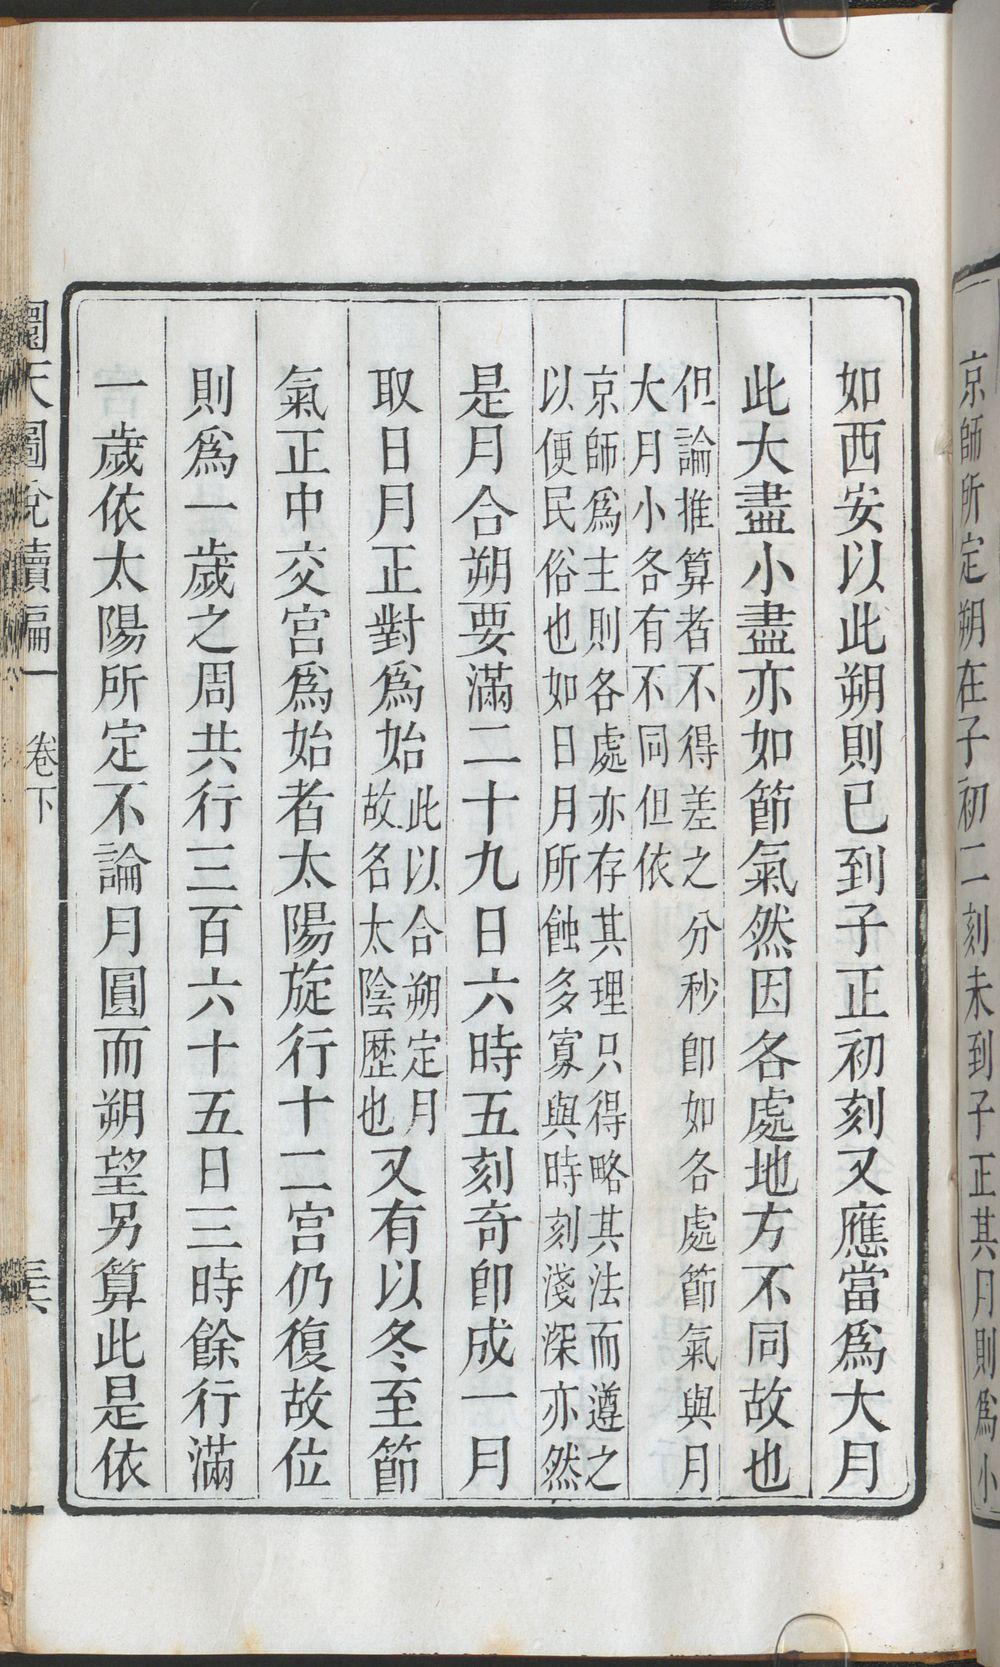 京師所定朔在子初二刻未到子正其月則爲小
如西安以此朔則已到子正初刻又應當爲大月
此大盡小盡亦如節氣然因各處地方不同故也
但論推算者不得差之分秒卽如各處節氣與月
大月小各有不同但依
京師爲主則各處亦存其理只得略其法而遵之
以便民俗也如日月所蝕多寡與時刻淺深亦然
是月合朔要滿二十九日六時五刻奇卽成一月
取日月正對爲始此以合朔定月故名太陰歷也又有以冬至節
氣正中交宮爲始者太陽旋行十二宮仍復故位
則爲一歲之周共行三百六十五日三時餘行滿
一歲依太陽所定不論月圓而朔望另算此是依
圜天圖說續編 卷下